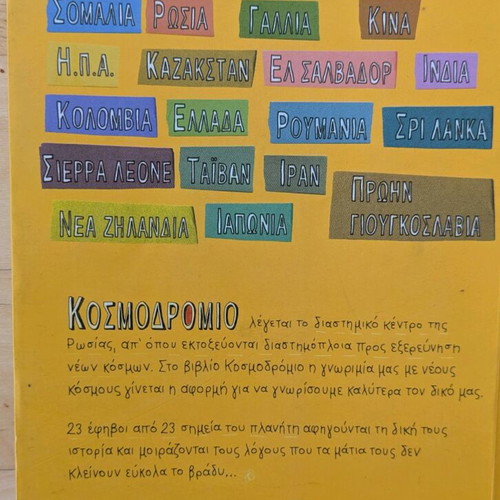 ΣΟΜΑΛΙΑ ΡΩΣΙΑ ΓΑΛΛΙΑ ΚΙΝΑ
Η.Π.Α. ΚΑΖΑΚΣΤΑΝ ΕΛ ΣΑΛΒΑΔΟΡ ΙΝΔΙΑ
ΚΟΛΟΜΒΙΑ ΕΛΛΑΔΑ ΡΟΥΜΑΝΙΑ ΣΡΙ ΛΑΝΚΑ
ΣΙΕΡΡΑ ΛΕΟΝΕ ΤΑΪΒΑΝ ΙΡΑΝ
ΠΡΩΗΝ
ΓΙΟΥΓΚΟΣΛΑΒΙΑ
ΝΕΑ ΖΗΛΑΝΔΙΑ ΙΑΠΩΝΙΑ
ΚΟΣΜΟΔΡΟΜΙΟ λέγεται το διαστημικό κέντρο της
Ρωσίας, απ' όπου εκτοξεύονται διαστημόπλοια προς εξερεύνηση
νέων κόσμων. Στο βιβλίο Κοσμοδρόμιο η γνωριμία μας με νέους
κόσμους γίνεται η αφορμή για να γνωρίσουμε καλύτερα τον δικό μας.
23 έφηβοι από 23 σημεία του πλανήτη αφηγούνται τη δική τους
ιστορία και μοιράζονται τους λόγους που τα μάτια τους δεν
κλείνουν εύκολα το βράδυ...